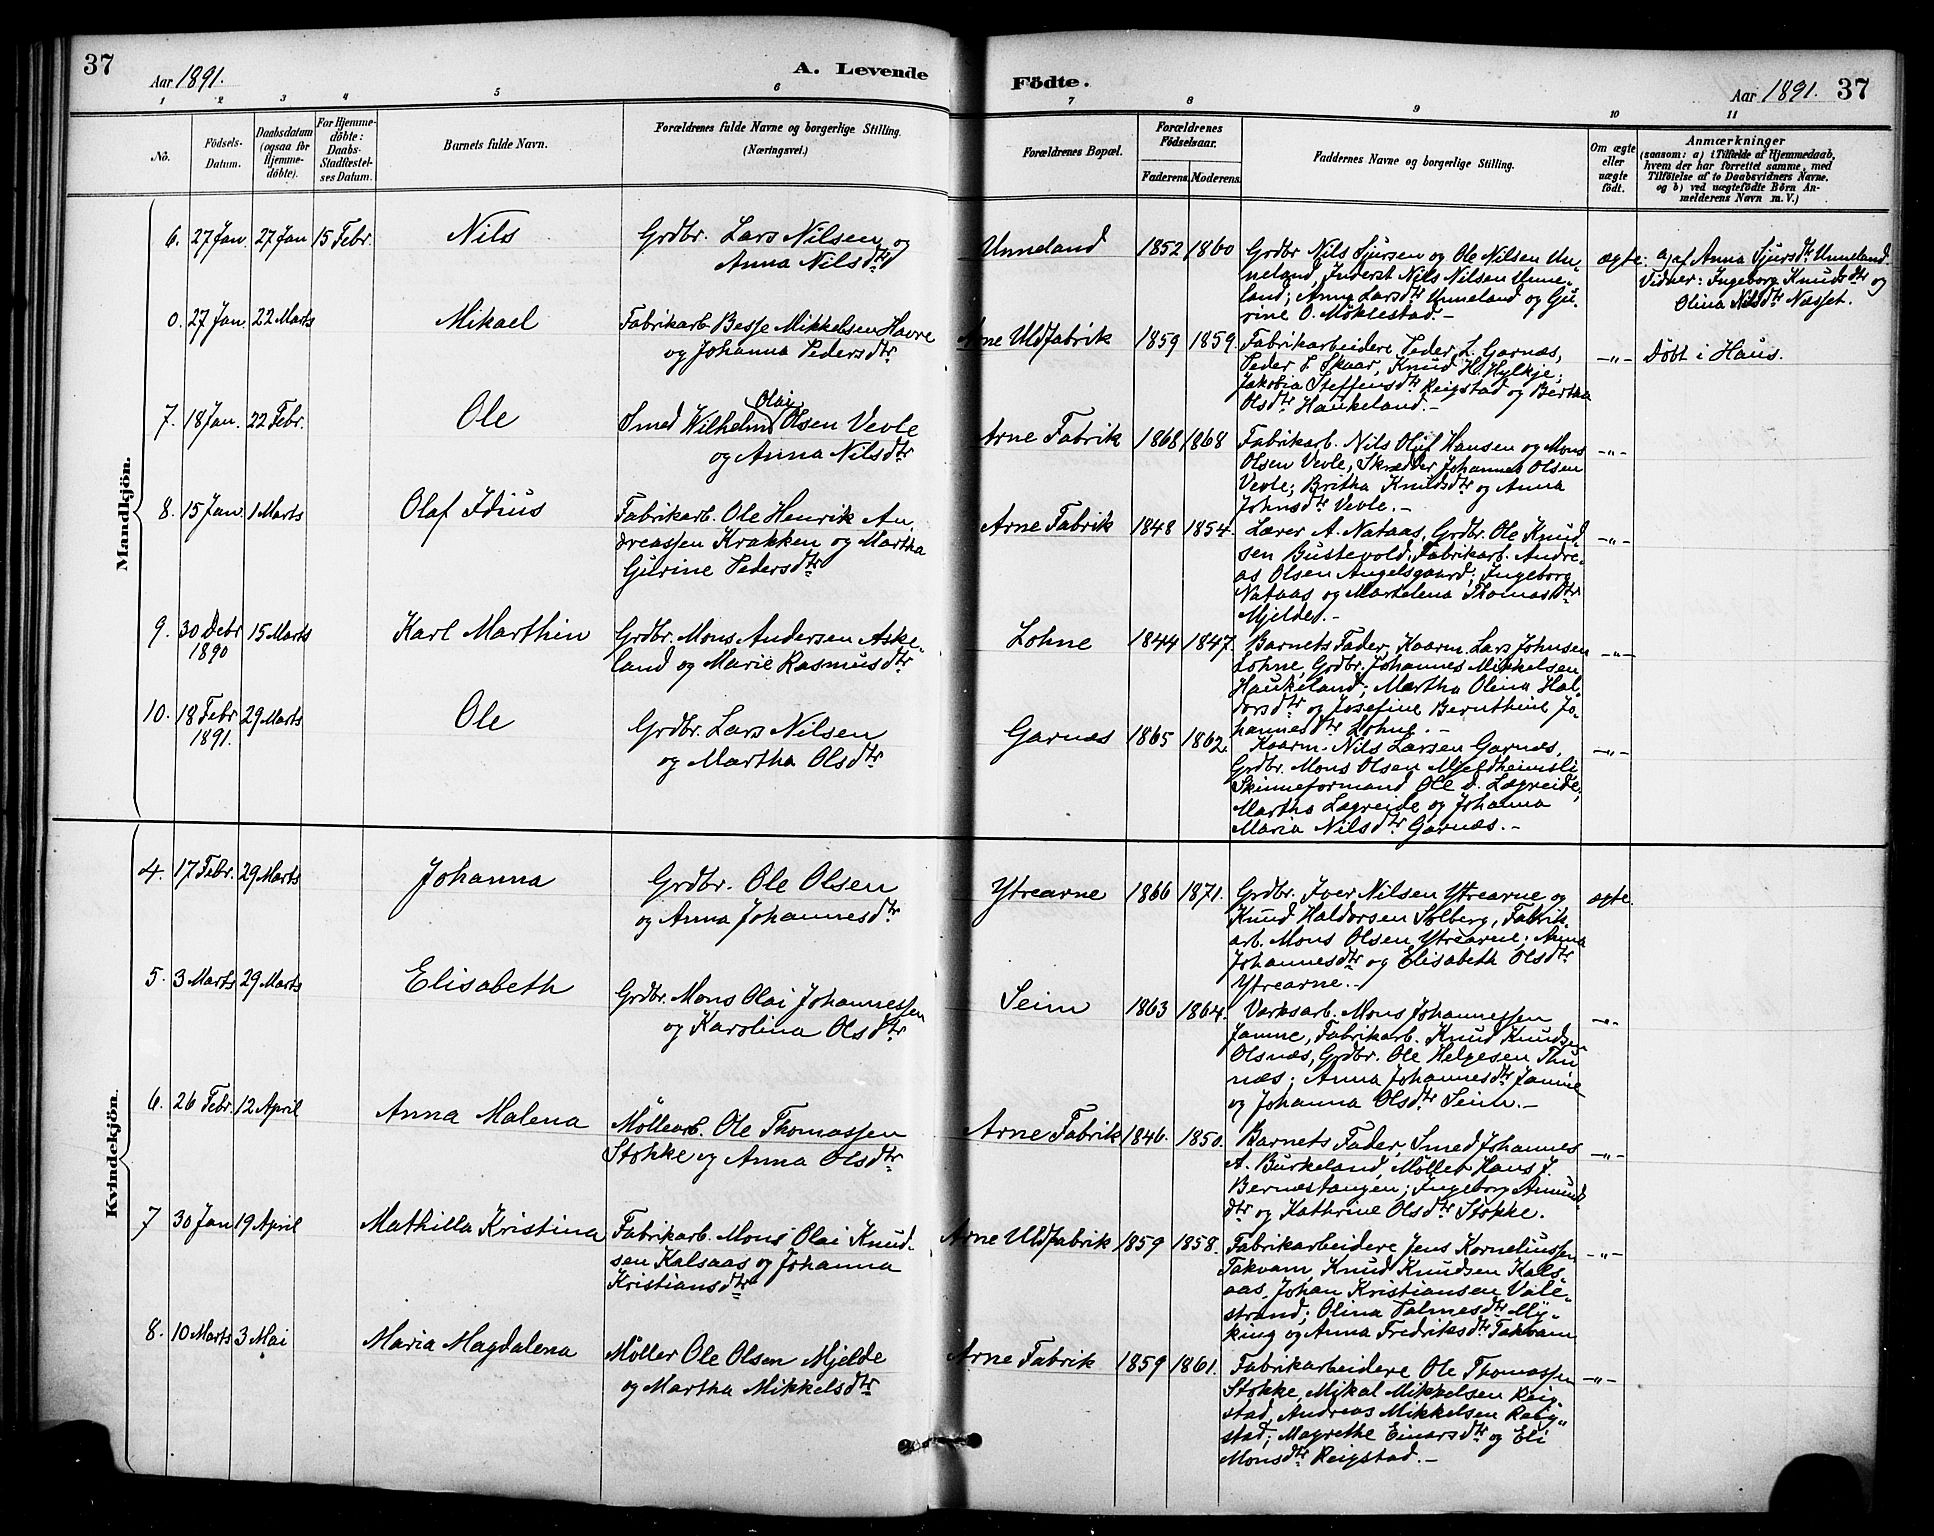 37
Aar 1891.
A. Levende
Födte.
Aar 1891.
37
1 2 3 4 5 6 7 8 9 10 11
No.
Födsels-
Datum.
Daabsdatum
(ogsaa for
Hjemme-
döbte).
For Hjemme-
döbte:
Daabs-
Stadfæstel-
ses Datum.
Barnets fulde Navn.
Forældrenes fulde Navne og borgerlige Stilling.
(Næringsvei.)
Forældrenes Bopæl.
Forældrenes
Födselsaar.
Faderens. Moderens.
Faddernes Navne og borgerlige Stilling.
Om ægte
eller
uægte
födt.
Anmærkninger
(saasom: a) i Tilfælde af Hjemmedaab,
hvem der har forrettet samme, med
Tilföielse af to Daabsvidners Navne.
og b) ved uægtefödte Börn An-
melderens Navn m.V.)
Mandkjön.
6. 27 Jan. 27 Jan 15 Febr. Nils
Grdbr. Lars Nilsen og
Anna Nilsdtr
Unneland 1852 1860
Grdbr Nils Sjursen og Ole Nilsen Un-
neland, Inderst Nils Nilsen Unne-
land; Anna Larsdtr Unneland og Gu-
rine O. Möklestad.-
ægte.
a) af Anna Sjursdtr Unneland.
Vidner: Ingeborg Knudsdtr og
Olina Nilsdtr Næsset.
0. 27 Jan. 22 Marts Mikael
Fabrikarb. Besse Mikkelsen Havre
og Johanna Pedersdtr
Arne Uldfabrik 1859 1859.
Fabrikarbeidere Peder L. Garnæs,
Peder L Skaar, Knud H. Hylkje;
Jakobia Steffensdtr Reigstad og Bertha
Olsdtr Haukeland.-
-"- Döbt i Haus.
7. 18 Jan. 22 Febr. Ole
Olai
Smed Wilhelm Olsen Vevle
og Anna Nilsdtr
Arne Fabrik 1868 1868
Fabrikarb. Nils Oluf Hansen og Mons
Olsen Vevle, Skrædder Johannes Olsen
Vevle; Britha Knudsdtr og Anna
Johnsdtr Vevle.-
-"-
8. 15 Jan. 1 Marts Olaf Idius
Fabrikarb. Ole Henrik An-
dreassen Krakken og Martha
Gurine Pedersdtr
Arne Fabrik 1848 1854.
Lærer A. Nataas, Grdbr. Ole Knud-
sen Bustevold, Fabrikarb. Andre-
as Olsen Angelsgaard; Ingeborg
Nataas og Marthelena Thomasdtr
Mjeldes.-
-"-
9. 30 Debr 15 Marts Karl Marthin
1890
Grdbr. Mons Andersen Aske-
land og Marie Rasmusdtr
Lohne 1844 1847.
Barnets Fader, Kaarm. Lars Johnsen
Lohne, Grdbr. Johannes Mikkelsen
Haukeland; Martha Olina Hal-
dorsdtr og Josefine Bernthine Jo-
hannesdtr Lohne.-
-"-
10. 18 Febr 29 Marts Ole
1891.
Grdbr. Lars Nilsen
og Martha Olsdtr
Garnæs 1865 1862.
Kaarm. Nils Larsen Garnæs,
Grdbr. Mons Olsen Mjeldheimsli
Skinneformand Ole D. Lægreide;
Martha Lægreide og Johanna
Maria Nilsdtr Garnæs.-
-"-
Kvindekjön.
4. 17 Febr. 29 Marts Johanna
Grdbr. Ole Olsen
og Anna Johannesdtr
Ytrearne 1866 1871.
Grdbr. Iver Nilsen Ytrearne og
Knud Haldorsen Solberg, Fabrik-
arb. Mons Olsen Ytrearne; Anna
Johannesdtr og Elisabeth Olsdtr
Ytrearne.-
ægte.
5. 3 Marts 29 Marts Elisabeth
Grdbr. Mons Olai Johannessen
og Karolina Olsdtr
Seim 1863 1864.
Varksarb. Mons Johannessen
Jamne, Fabrikarb. Knud Knudsen
Olsnæs, Grdbr. Ole Helgesen Thu-
næs; Anna Johannesdtr Jamne
og Johanna Olsdtr Seim.-
-"-
6. 26 Febr. 12 April Anna Malena
Möllearb. Ole Thomassen
Stokke og Anna Olsdtr
Arne Fabrik 1846. 1850.
Barnets Fader, Smed Johannes
A. Burkeland, Möller Hans J.
Bernæstangen; Ingeborg Amund-
dtr og Kathrine Olsdtr Stokke.
-"-
7 30 Jan 19 April Mathilla Kristina
Fabrikarb. Mons Olai Knud-
sen Kalsaas og Johanna
Kristiansdtr
Arne Uldfabrik 1859 1858.
Fabrikarbeidere Jens Korneliussen
Takvam, Knud Knudsen Kals-
aas, Johan Kristiansen Vale-
strand; Olina Palmesdtr My-
king og Anna Fredriksdtr Takvam
-"-
8. 10 Marts 3 Mai Maria Magdalena
Möller Ole Olsen Mjelde
og Martha Mikkelsdtr
Arne Fabrik 1859 1861.
Fabrikarbeidere Ole Thomassen
Stokke, Mikal Mikkelsen Reig-
stad, Andreas Mikkelsen Reig-
stad; Magrethe Einarsdtr og Eli
Monsdtr Reigstad.-
-"-